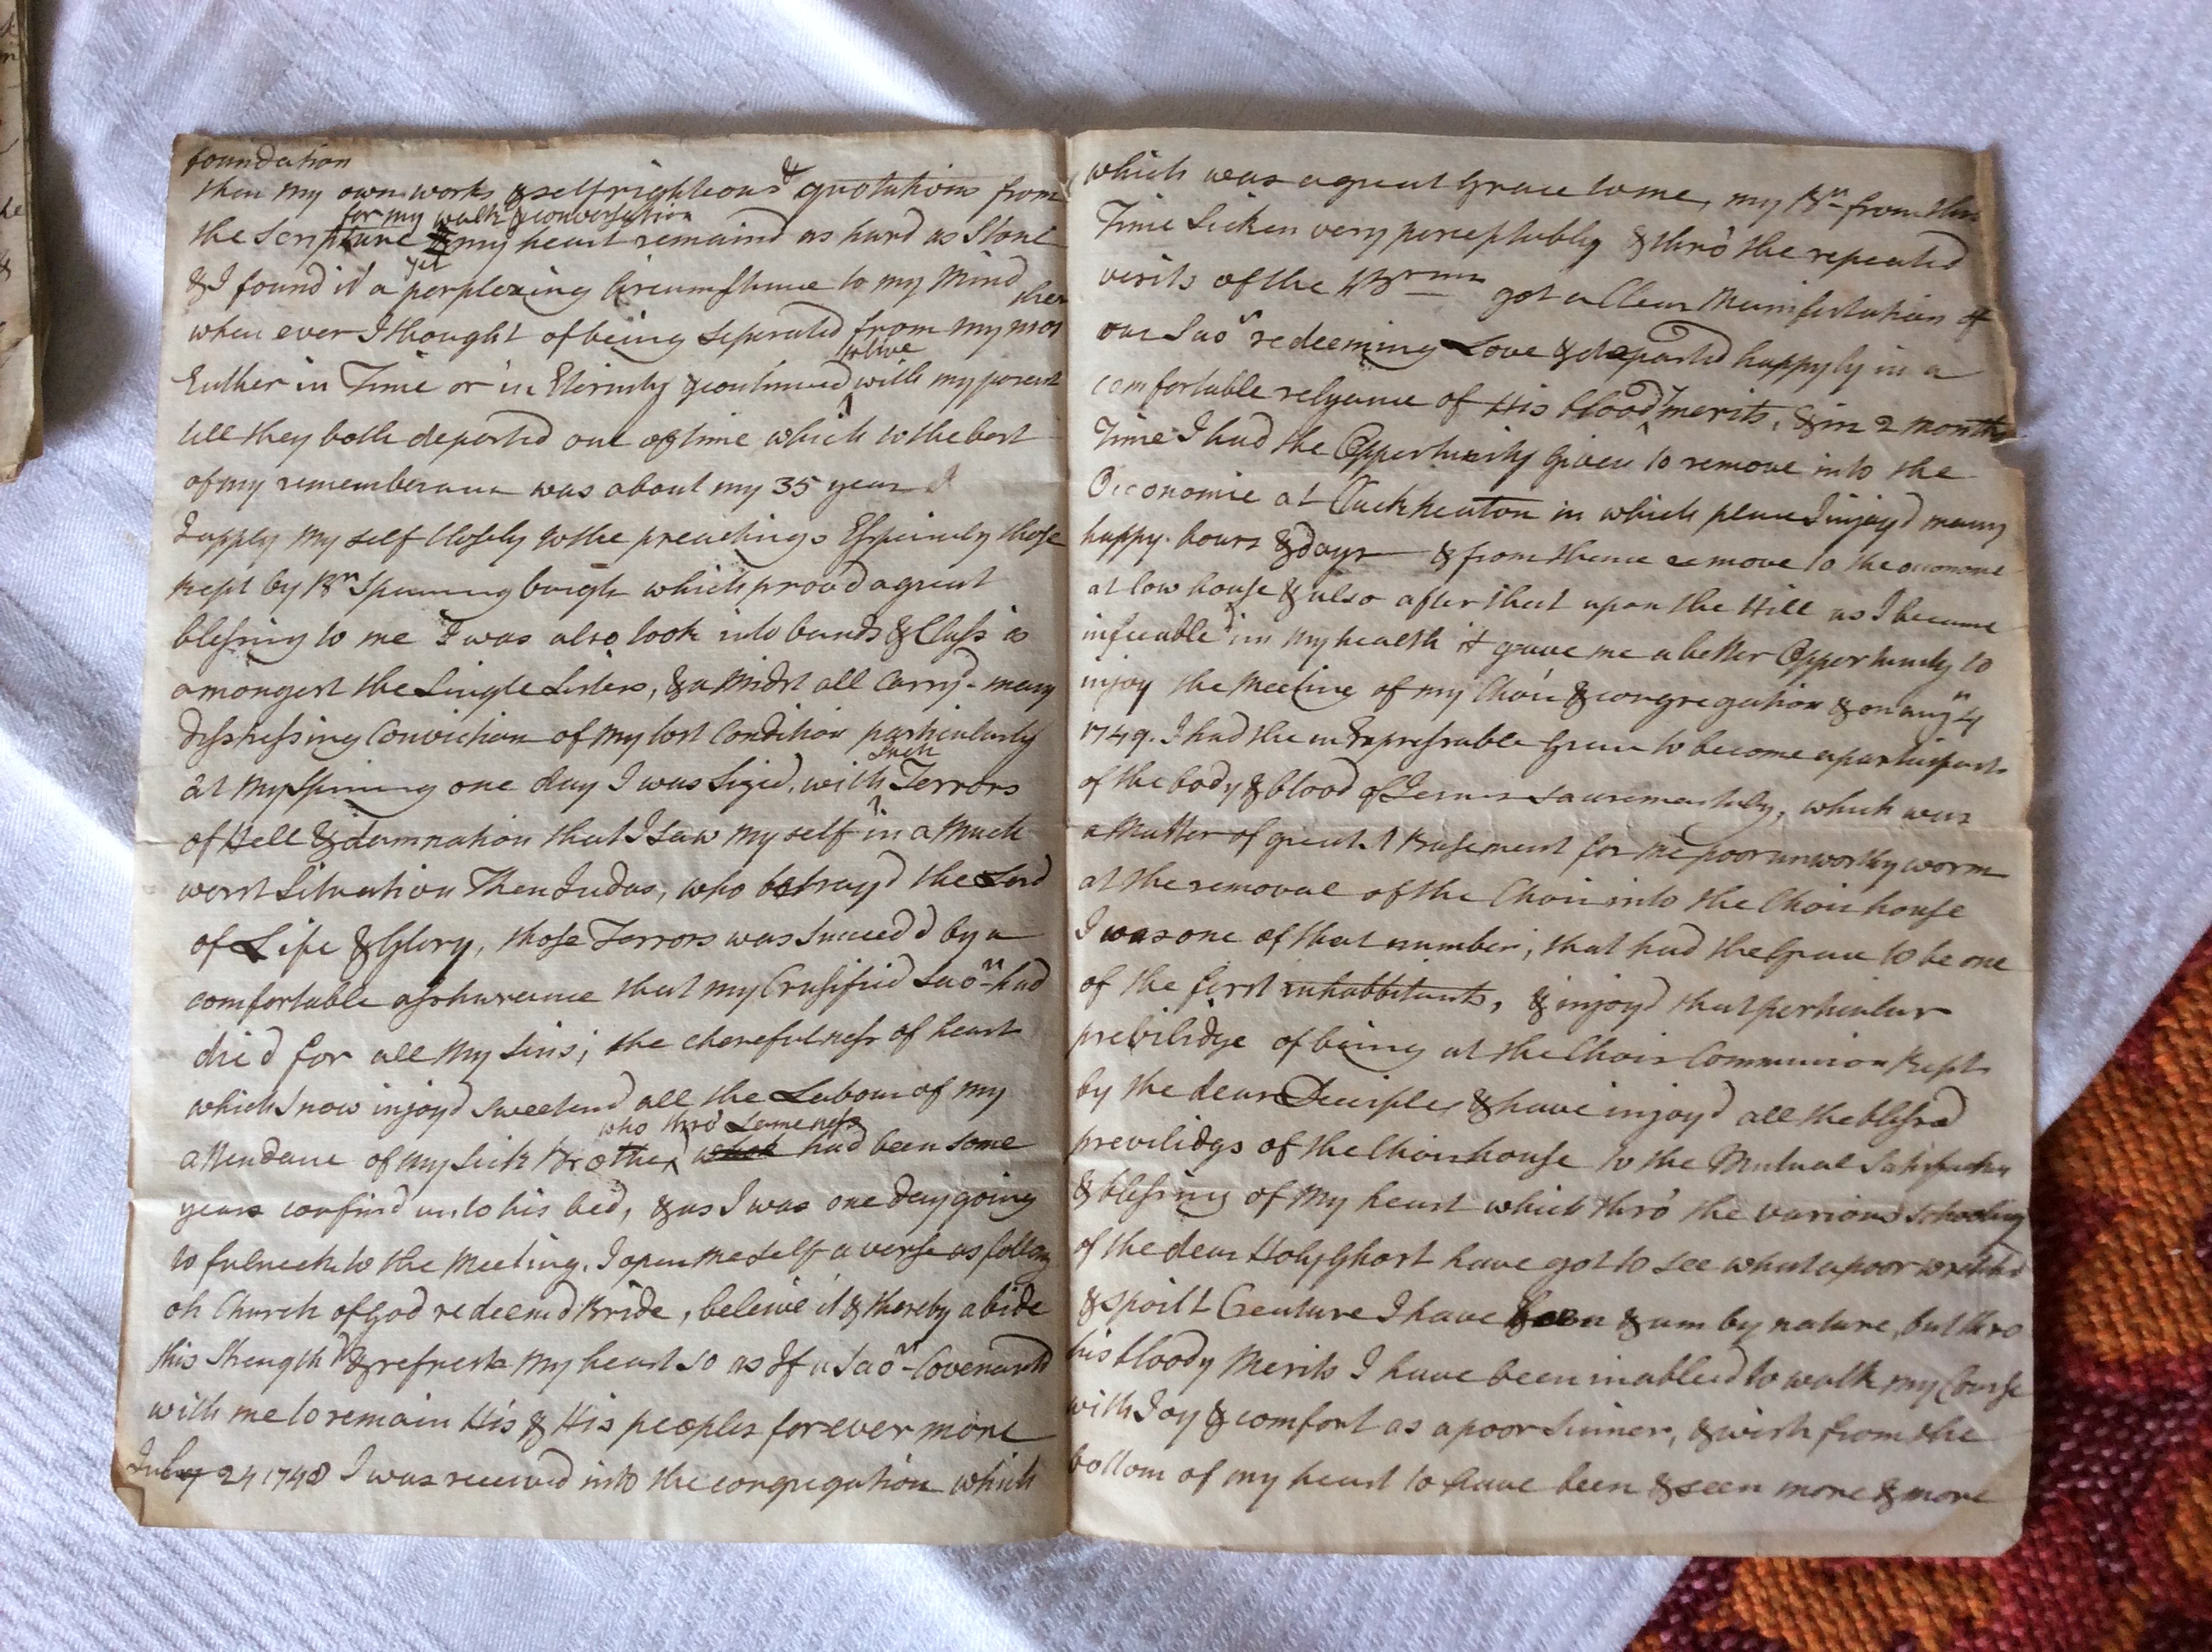 foundation
then my own works & self righteous & quotations from
the Scripture for my walk & conversation my heart remaind as hard as Stone
& I found it yet a perplexing Circumstance to my Mind
when ever I thought of being Seperated from my mother
Euther in Time or in Eternity & continued to live with my parent
till they both departed out of time which to the best
of my rememberance was about my 35 year
I apply my self Closely to the preachings Espicialy those
kept by Brn Spanengburgh which provd a great
blessing to me I was also took into bands & Class is
amongest the Single Sisters, & a Midst all Carry'd many
disstressing Conviction of my lost Condition particularly
at my Spinning one day I was Sized with Such Terrors
of Hell & damnation that I Saw my self in a Much
worst Situation Then Judas, who betray'd the Lord
of Life & Glory, those Terrors was Succeed'd by a
comfortable asshurance that my Crusified Saor had
die'd for all my Sins; the cherefulness of heart
which I now injoy'd Sweetend all the Labour of my
attendance of my Sick Brother, who thro' Lameness had been some
years confin'd unto his bed, & as I was one day going
to fulneck to the Meeting, I open me self a verse as follow
oh Church of God redeem'd Bride, beleive it & thereby abide
this Strength'd & refresht my heart so as If a Saor Covenanted
with me to remain His & His peoples for ever more
July 24 1748 I was received into the congregation which
which was a great Grace to me, my Br from this
Time Sicken very perceptably & thro' the repeated
visits of the Brrn got a Clear Manifestation of
our Saor redeeming Love & departed happyly in a
comfortable relyance of His blood merits, & in 2 months
Time I had the Oppertunity given to remove into the
Oeconomie at Cluckheaton in which place I injoy'd many
happy hours & days & from thence remove to the oeconomie
at low house & also after that upon the Hill as I became
infeeabled in my health it gave me a better Oppertunity to
injoy the Meeting of my Choir & congregation & on augn 4
1749. I had the in Expressable Grace to become a partisipant
of the body & blood of Jesus Sacrementaly, which was
a Matter of great ABasement for me poor unworthy worm
at the removal of the Choir into the Choir house
I was one of that number, that had the Grace to be one
of the first inhabbitants, & injoy'd that perticular
prebilidge of being at the Choir Communion Kept
by the dear Disciple & have injoy'd all the blessed
previlidgs of the Choir house to the Mutual Satisfaction
& blessing of my heart which thro' the various Schooling
of the dear Holy Ghost have got to see what a poor wretched
& spoilt Creature I have been & am by nature, but thro
his bloody Merits I have been inableed to walk my Course
with Joy & comfort as a poor Sinner, & wish from the
bottom of my heart to have been & seen more & more